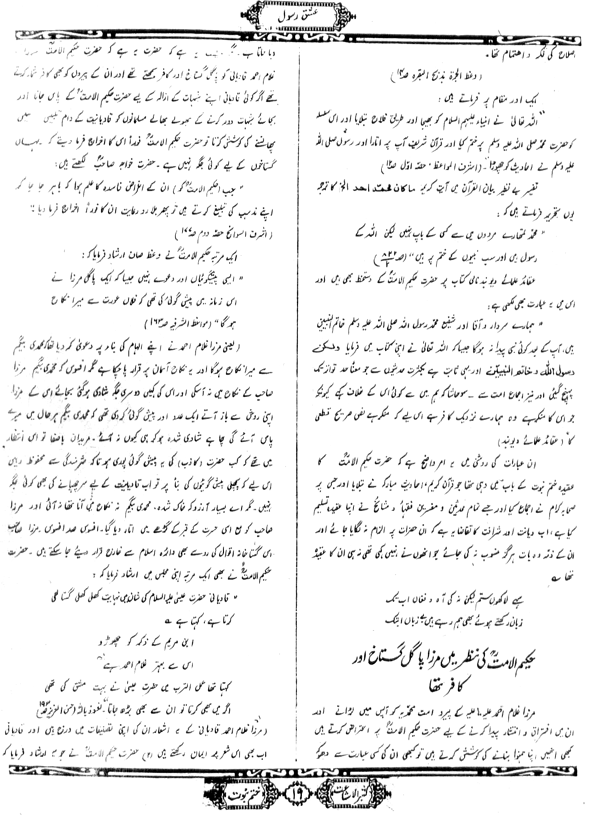 عشق رسول
اصلاح کی فکر و اہتمام تھا۔
(وعظ الحیٰوۃ تذبیح البقرہ ص)
ایک اور مقام پر فرماتے ہیں:
" اللہ تعالیٰ نے انبیاء علیہم السلام کو بھیجا اور طریق فلاح بتلایا اور اس سلسلہ
کو حضرت محمد صلی اللہ علیہ وسلم پر ختم کیا اور قرآن شریف آپ پر اتارا اور رسول صلی اللہ
علیہ وسلم نے احادیث کو چھوڑا" (اشرف المواعظ حصہ اول ص)
تفسیر بے نظیر بیان القرآن میں آیت کریمہ ماکان محمد ابا احد الخ کا ترجمہ
یوں تحریر فرماتے ہیں کہ:
" محمد تمہارے مردوں میں سے کسی کے باپ نہیں لیکن اللہ کے
رسول ہیں اور سب نبیوں کے ختم پر ہیں"
عقائد علمائے دیوبند نامی کتاب پر حضرت حکیم الامت کے دستخط بھی ہیں اور
اس میں یہ عبارت بھی لکھی ہے:
" ہمارے سردار و آقا اور شفیع محمد رسول اللہ صلی اللہ علیہ وسلم خاتم النبیین
ہیں، آپ کے بعد کوئی نبی پیدا نہ ہوگا جیسا کہ اللہ تعالیٰ نے اپنی کتاب میں فرمایا ولکن
رسول اللہ وخاتم النبیین اور یہی ثابت ہے بکثرت حدیثوں سے جو معنا حد تواتر تک
پہنچ گئیں اور نیز اجماع امت سے ۔ سو حاشا کہ ہم میں سے کوئی اس کے خلاف کہے کیونکہ
جو اس کا منکر ہے وہ ہمارے نزدیک کافر ہے اس لیے کہ منکر ہے نص صریح قطعی
کا (عقائد علمائے دیوبند)
ان عبارات کی روشنی میں یہ امر واضح ہے کہ حضرت حکیم الامت کا
عقیدہ ختم نبوت کے باب میں وہی تھا جو قرآن کریم، احادیث مبارکہ نے بتلایا اور جس پر
صحابہ کرام نے اجماع کیا اور جسے تمام محدثین و مفسرین فقہاء و مشائخ نے اپنا عقیدہ تسلیم
کیا ہے، اب دیانت اور شرافت کا تقاضا یہ ہے کہ ان حضرات پر الزام نہ لگایا جائے اور
ان کے ذمہ وہ بات ہرگز منسوب نہ کی جائے جو انہوں نے نہیں کہی تھی نہ ہی ان کا عقیدہ
تھا ؎
سہے لاکھوں ستم لیکن نہ کی آہ و فغاں اب تک
زباں رکھتے ہوئے بھی ہم رہے ہیں بے زباں اب تک
حکیم الامت کی نظر میں مرزا پاگل گستاخ اور
کافر تھا
مرزا غلام احمد علیہ ما علیہ کے پیرو امت محمدیہ کو آپس میں لڑانے اور
ان میں افتراق و انتشار پیدا کرنے کے لیے حضرت حکیم الامت پر اعتراض کرتے ہیں
کبھی انہیں اپنا ہمنوا بنانے کی کوشش کرتے ہیں تو کبھی ان کی کسی عبارت سے دھوکہ
دیا جاتا ہے۔ یہ ہے کہ حضرت یہ ہے کہ حضرت حکیم الامت مرزا
غلام احمد قادیانی کو پاگل گستاخ اور کافر سمجھتے تھے اور ان کے پیروں کو بھی کافر شمار کرتے
تھے اگر کوئی قادیانی اپنے شبہات کے ازالہ کے لیے حضرت حکیم الامت کے پاس جاتا اور
بجائے شبہات دور کرنے کے بھولے بھالے مسلمانوں کو قادیانیت کے دام میں
پھانسنے کی کوشش کرتا تو حضرت حکیم الامت فوراً اس کا اخراج فرما دیتے کہ یہاں
گستاخوں کے لیے کوئی جگہ نہیں ہے۔ حضرت خواجہ صاحب لکھتے ہیں:
" جب (حکیم الامت کو) ان کے اغراض فاسدہ کا علم ہوا کہ باہر جا جا کر
اپنے مذہب کی تبلیغ کرتے ہیں تو پھر بلا رو رعایت ان کا فوراً اخراج فرما دیا:
(اشرف السوانح حصہ دوم ص)
ایک مرتبہ حکیم الامت نے وعظ میں صاف ارشاد فرمایا کہ:
" ایسی پیشگوئیاں اور دعوے نہیں جیسا کہ ایک پاگل مرزا نے
اس زمانہ میں پیش گوئی کی تھی کہ فلاں عورت سے میرا نکاح
ہوگا" (مواعظ اشرفیہ ص)
(یعنی مرزا غلام احمد نے اپنے الہام کی بناء پر دعویٰ کر دیا تھا کہ محمدی بیگم
سے میرا نکاح ہوگا اور یہ نکاح آسمان پر قرار پا چکا ہے مگر افسوس کہ محمدی بیگم مرزا
صاحب کے نکاح میں نہ آسکی اور اس کی کہیں دوسری جگہ شادی ہوگئی بجائے اس کے مرزا
اپنی روش سے باز آتے ایک عدد اور پیش گوئی کر دی تھی کہ محمدی بیگم بہر حال میں میرے
پاس آئے گی چاہے شادی شدہ ہو کر ہی کیوں نہ آئے۔ مریدان باصفا تو اس انتظار
میں تھے کہ کب حضرت (کاذب) کی یہ پیش گوئی پوری ہو تاکہ شرمندگی سے محفوظ رہیں
اس لیے کہ پچھلی پیش گوئیوں کی بناء پر تو اب قادیانیت کے لیے سر چھپانے کی بھی کوئی جگہ
نہیں۔ مگر اے بسیار آرزو کہ خاک شدہ۔ محمدی بیگم نہ نکاح میں آنا تھا نہ آئی اور مرزا
صاحب کو مع اسی حسرت کے قبر کے گڑھے میں اتار دیا گیا۔ افسوس صد افسوس۔ مرزا صاحب
اس گستاخانہ اقوال کی رو سے بھی دائرہ اسلام سے خارج قرار دیئے جا سکتے ہیں۔ حضرت
حکیم الامت نے بھی ایک مرتبہ اپنی مجلس میں ارشاد فرمایا کہ:
" قادیانی حضرت عیسیٰ علیہ السلام کی شان میں نہایت کھلی کھلی گستاخی
کرتا ہے، کہتا ہے ؎
ابن مریم کے ذکر کو چھوڑو
اس سے بہتر غلام احمد ہے
کہتا تھا عمل الترب میں حضرت عیسیٰ نے بہت مشق کی تھی
اگر میں بھی کرتا تو ان سے بھی بڑھ جاتا۔ نعوذ باللہ
(مرزا غلام احمد قادیانی کے یہ اشعار ان کی اپنی تصنیفات میں درج ہیں اور قادیانی
اب بھی اس شعر پر ایمان رکھتے ہیں) حضرت حکیم الامت نے جو یہ ارشاد فرمایا کہ
ختم نبوت
۱۹